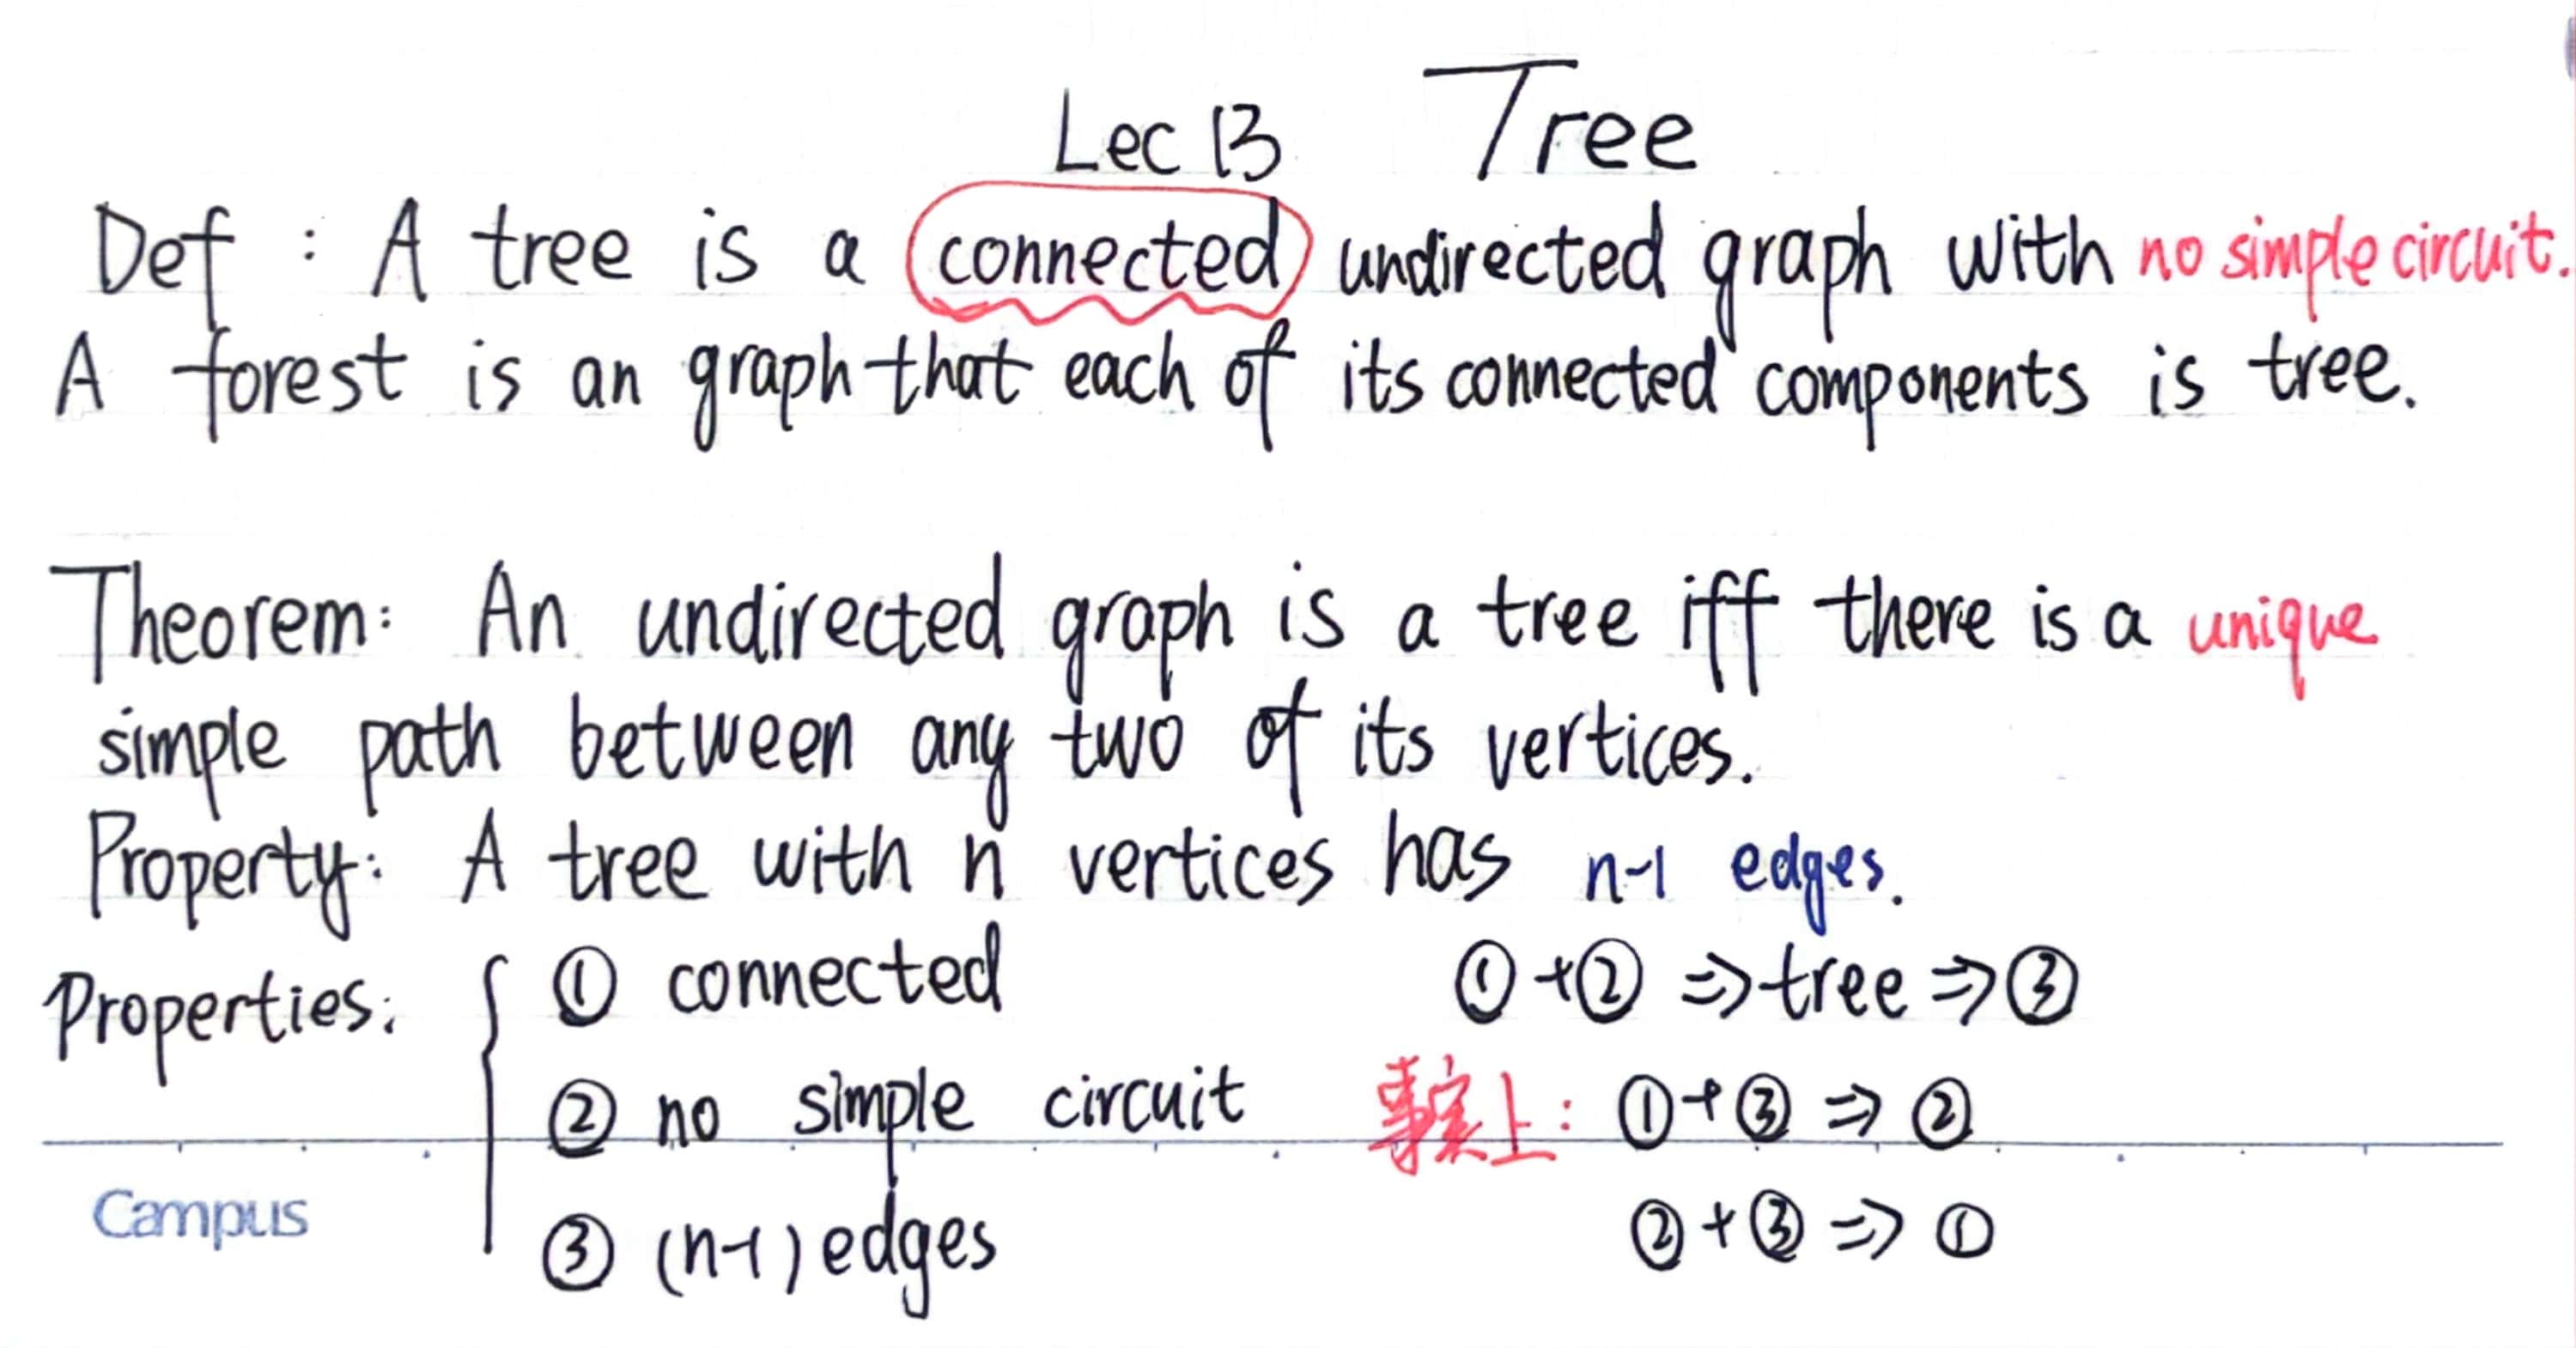 Lec 13 Tree
Def : A tree is a connected undirected graph with no simple circuit.
A forest is an graph that each of its connected components is tree.
Theorem: An undirected graph is a tree iff there is a unique
simple path between any two of its vertices.
Property: A tree with n vertices has n-1 edges.
Properties: ① connected ①+② ⇒ tree ⇒ ③
② no simple circuit 事実上: ①+③ ⇒ ②
Campus ③ (n-1) edges ②+③ ⇒ ①